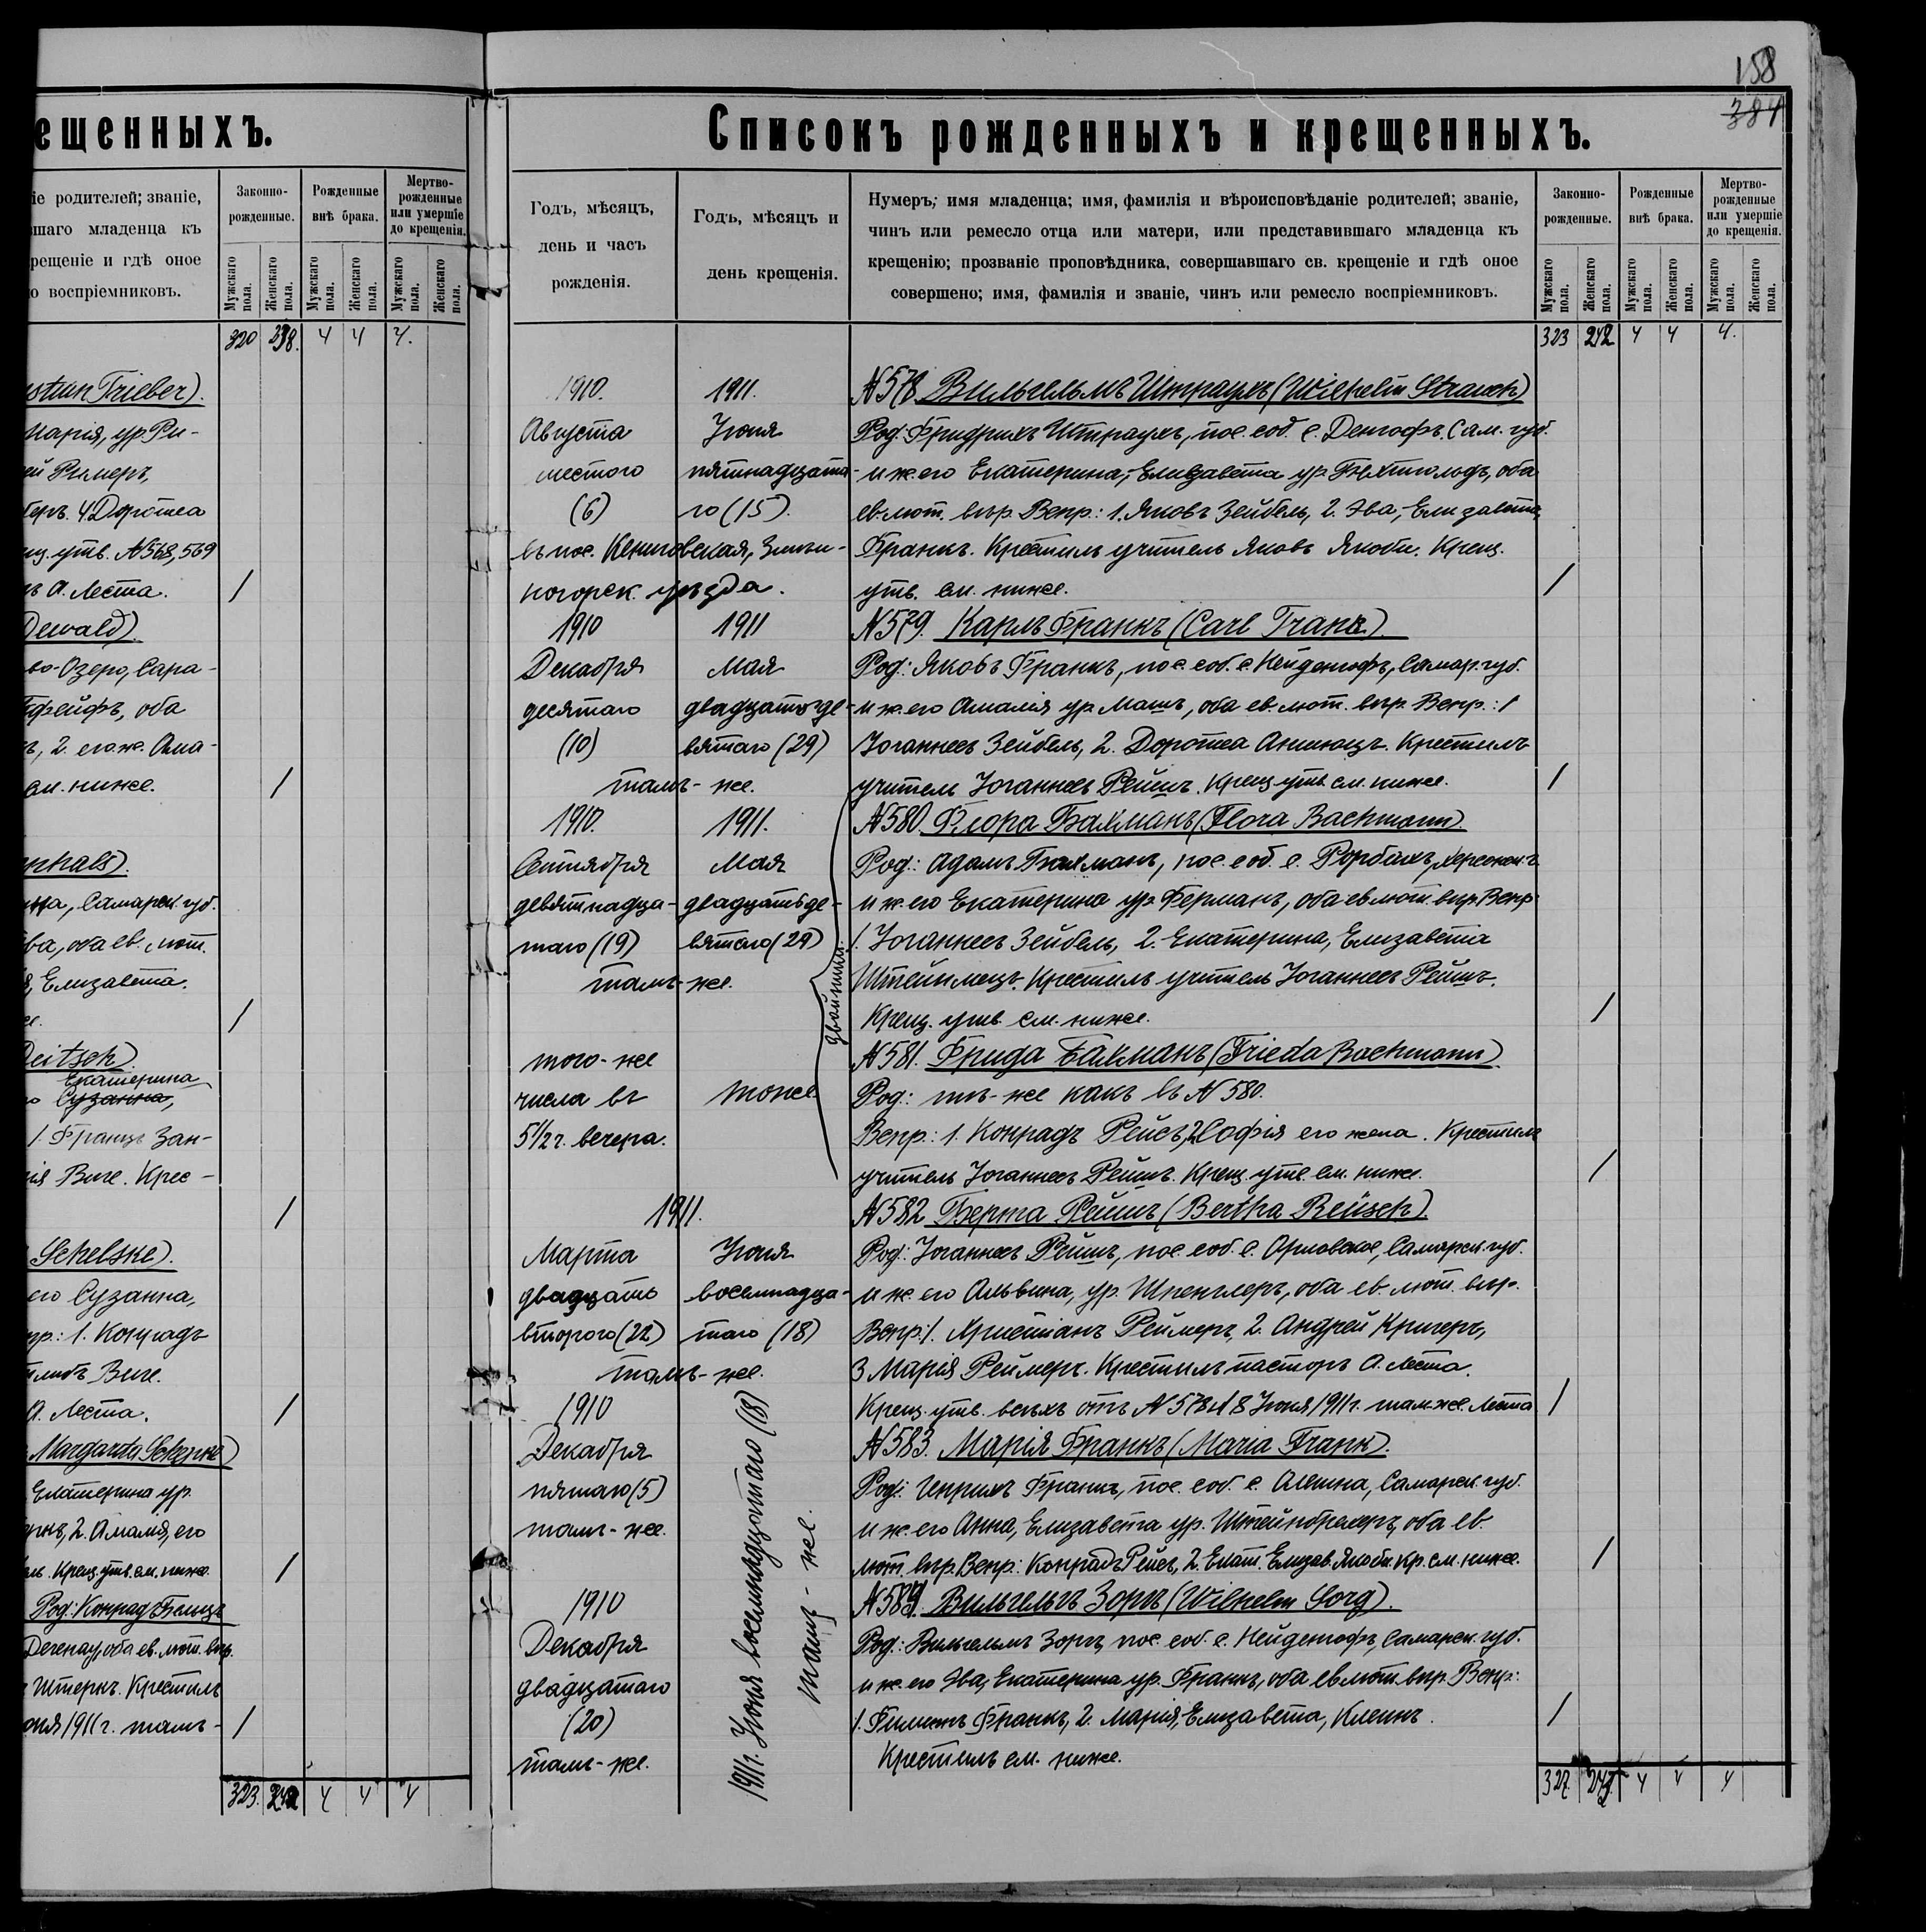 ещенныхъ.
іе родителей; званіе,
шаго младенца къ
рещеніе и гдѣ оное
о воспріемниковъ.
Законно-
рожденные.
Рожденные
внѣ брака.
Мертво-
рожденные
или умершіе
до крещенія.
Мужскаго пола.
Женскаго пола.
Мужскаго пола.
Женскаго пола.
Мужскаго пола.
Женскаго пола.
320 4 4 4.
stian Trieber).
Марія, ур. Ри-
ей Римеръ,
4. Доротеа
утв. №568, 569
А. Леста. /
Dewald)
во-Озеро, Сара-
оба
2. его ж. Ама-
см. ниже. /
nhals).
Самарск. губ.
ва, оба ев. лют.
Елизавета.
/
Deitsch)
Екатерина
Сузанна,
1. Францъ Зан-
ія Виге. Крес-
/
Schelske).
его Сузанна,
пр.: 1. Конрадъ
Виге.
А. Леста. /
Margareta
Екатерина ур.
2. Амалія, его
Крещ. утв. см. ниже. /
Род: Конрадъ Бельцъ
Дегенау, оба ев. лют. вѣр.
Штеркъ. Крестилъ
1911 г. тамъ- /
323. 242 4 4 4
158
384
Списокъ рожденныхъ и крещенныхъ.
Годъ, мѣсяцъ,
день и часъ
рожденія.
Годъ, мѣсяцъ и
день крещенія.
Нумеръ; имя младенца; имя, фамилія и вѣроисповѣданіе родителей; званіе,
чинъ или ремесло отца или матери, или представившаго младенца къ
крещенію; прозваніе проповѣдника, совершавшаго св. крещеніе и гдѣ оное
совершено; имя, фамилія и званіе, чинъ или ремесло воспріемниковъ.
Законно-
рожденные.
Рожденные
внѣ брака.
Мертво-
рожденные
или умершіе
до крещенія.
Мужскаго пола.
Женскаго пола.
Мужскаго пола.
Женскаго пола.
Мужскаго пола.
Женскаго пола.
323 242 4 4 4.
1910. 1911. №578 Вильгельмъ Штраухъ (Wilhelm Strauch)
Августа Іюня Род: Фридрихъ Штраухъ, пос. соб. с. Денгофъ, Сам. губ.
шестого пятнадцата- и ж. его Екатерина,-Елизавета ур. Бехтгольдъ, оба
(6) го (15). ев. лют. вѣр. Вспр.: 1. Яковъ Зейбель, 2. Эва,-Елизавета,
въ пос. Кениговская, Франкъ. Крестилъ учитель Яковъ Якоби. Крещ.
ногорск. уѣзда. утв. см. ниже. /
1910 1911 №579. Карлъ Франкъ (Carl Frank)
Декабря Мая Род: Яковъ Франкъ, пос. соб. с. Нейденгофъ, Самар. губ.
десятаго двадцать де- и ж. его Амалія ур. Машъ, оба ев. лют. вѣр. Вспр.: 1
(10) вятаго (29) Іоганнесъ Зейбель, 2. Доротеа Аншюцъ. Крестилъ
тамъ-же. учитель Іоганнесъ Рейшъ. Крещ. утв. см. ниже. /
двойники.
1910. 1911. №580. Флора Бахманъ (Flora Bachmann)
Сентября Мая Род: Адамъ Бахманъ, пос. соб. с. Рорбахъ, Херсонск. г.
девятнадца- двадцать де- и ж. его Екатерина ур. Ферманъ, оба ев. лют. вѣр. Вспр:
таго (19) вятаго (29) 1. Іоганнесъ Зейбель, 2. Екатерина, Елизавета
тамъ-же. Штейнмецъ. Крестилъ учитель Іоганнесъ Рейшъ.
Крещ. утв. см. ниже. /
того-же №581. Фрида Бахманъ (Frieda Bachmann)
числа въ тоже. Род: тѣ-же какъ въ №580.
5½ ч. вечера. Вспр: 1. Конрадъ Рейсъ, 2. Софія его жена. Крестилъ
учитель Іоганнесъ Рейшъ. Крещ. утв. см. ниже. /
1911. №582 Берта Рейшъ (Bertha Reüsch)
Марта Іюня Род: Іоганнесъ Рейшъ, пос. соб. с. Орловское, Самарск. губ.
двадцать восемнадца- и ж. его Альвина, ур. Шпенглеръ, оба ев. лют. вѣр.
второго (22) таго (18) Вспр: 1. Христіанъ Реймеръ, 2. Андрей Кригеръ,
тамъ-же. 3 Марія Реймеръ. Крестилъ пасторъ А. Леста.
1910 Крещ. утв. всѣхъ отъ №578 18 Іюня 1911 г. тамже. Леста /
1911 г. Іюня восемнадцатаго (18)
тамъ-же.
Декабря №583. Марія Франкъ (Maria Frank).
пятаго (5) Род: Генрихъ Франкъ, пос. соб. с. Самарск. губ.
тамъ-же. и ж. его Анна, Елизавета ур. Штейнбрехеръ, оба ев.
лют. вѣр. Вспр: Конрадъ Рейсъ, 2. Екат. Елизав. Якоби. Кр. см. ниже. /
1910 №584. Вильгельмъ Зоргъ (Wilhelm Sorg).
Декабря Род: Вильгельмъ Зоргъ, пос. соб. с. Нейденгофъ, Самарск. губ.
двадцатаго и ж. его Эва, Екатерина ур. Франкъ, оба ев. лют. вѣр. Вспр:
(20) 1. Филиппъ Франкъ, 2. Марія, Елизавета, Клеинъ. /
тамъ-же. Крестилъ см. ниже.
327. 4 4 4